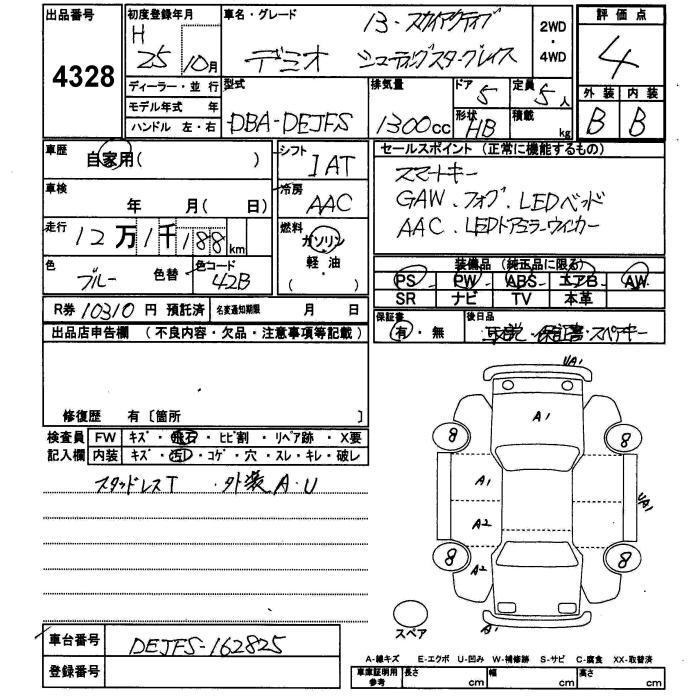 出品番号 4328
初度登録年月 H 25 10月
車名・グレード 13-スカイアクティブ
デミオ シューティングスターグレイス
2WD・4WD
評価点 4
外装 内装
B B
ディーラー・並行
モデル年式 年
ハンドル 左・右
型式 DBA-DEJFS
排気量 1300cc
ドア 5
定員 5人
形状 HB
積載 kg
車歴 自家用( )
シフト IAT
車検 年 月( 日)
冷房 AAC
走行 12万1千188km
燃料 ガソリン 軽・油 ( )
色 ブルー 色替
色コード 42B
R券 10310円 預託済 名変通知期限 月 日
セールスポイント (正常に機能するもの)
スマートキー
GAW.フォグ.LEDヘッド
AAC.LEDドアミラーウィンカー
装備品 (純正品に限る)
PS PW ABS エアB AW
SR ナビ TV 本革
保証書 有・無
後日品 取説・保証書・スペアキー
出品店申告欄 (不良内容・欠品・注意事項等記載)
修復歴 有〔箇所 〕
検査員 FW キズ・飛石・ヒビ割・リペア跡・X要
記入欄 内装 キズ・汚・コゲ・穴・スレ・キレ・破レ
スタッドレスT ・外装A.U
UA1
A1
8 8
A1
UA1
A2
8 8
A2
A1
スペア
車台番号 DEJFS-162825
登録番号
A-線キズ E-エクボ U-凹み W-補修跡 S-サビ C-腐食 XX-取替済
車庫証明用参考 長さ cm 幅 cm 高さ cm